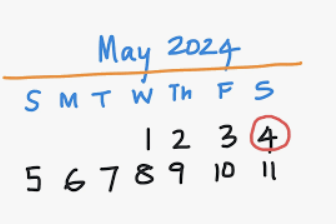 May 2024
S M T W Th F S
1 2 3 4
5 6 7 8 9 10 11